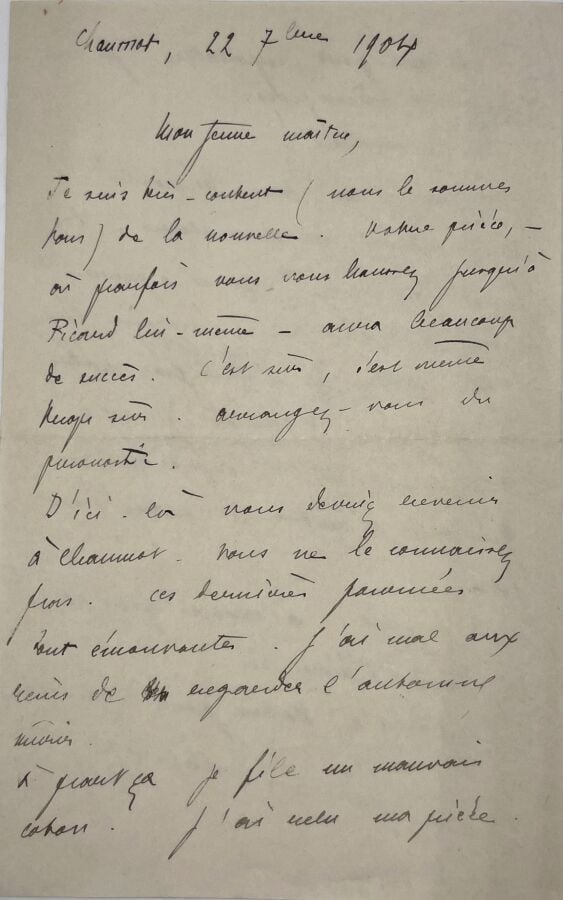 Chaumot, 22 7bre 1904
Mon jeune maître,
Je suis très-content (nous le sommes
tous) de la nouvelle. Votre pièce, -
où parfois vous vous haussez jusqu'à
Picard lui-même - aura beaucoup
de succès. C'est sûr, c'est même
trop sûr. Arrangez-vous du
pronostic.
D'ici-là vous devriez revenir
à Chaumot. Vous ne le connaissez
pas. Ces dernières journées
sont émouvantes. J'ai mal aux
reins de regarder l'automne
mûrir.
A part ça je file un mauvais
coton. J'ai relu ma pièce.